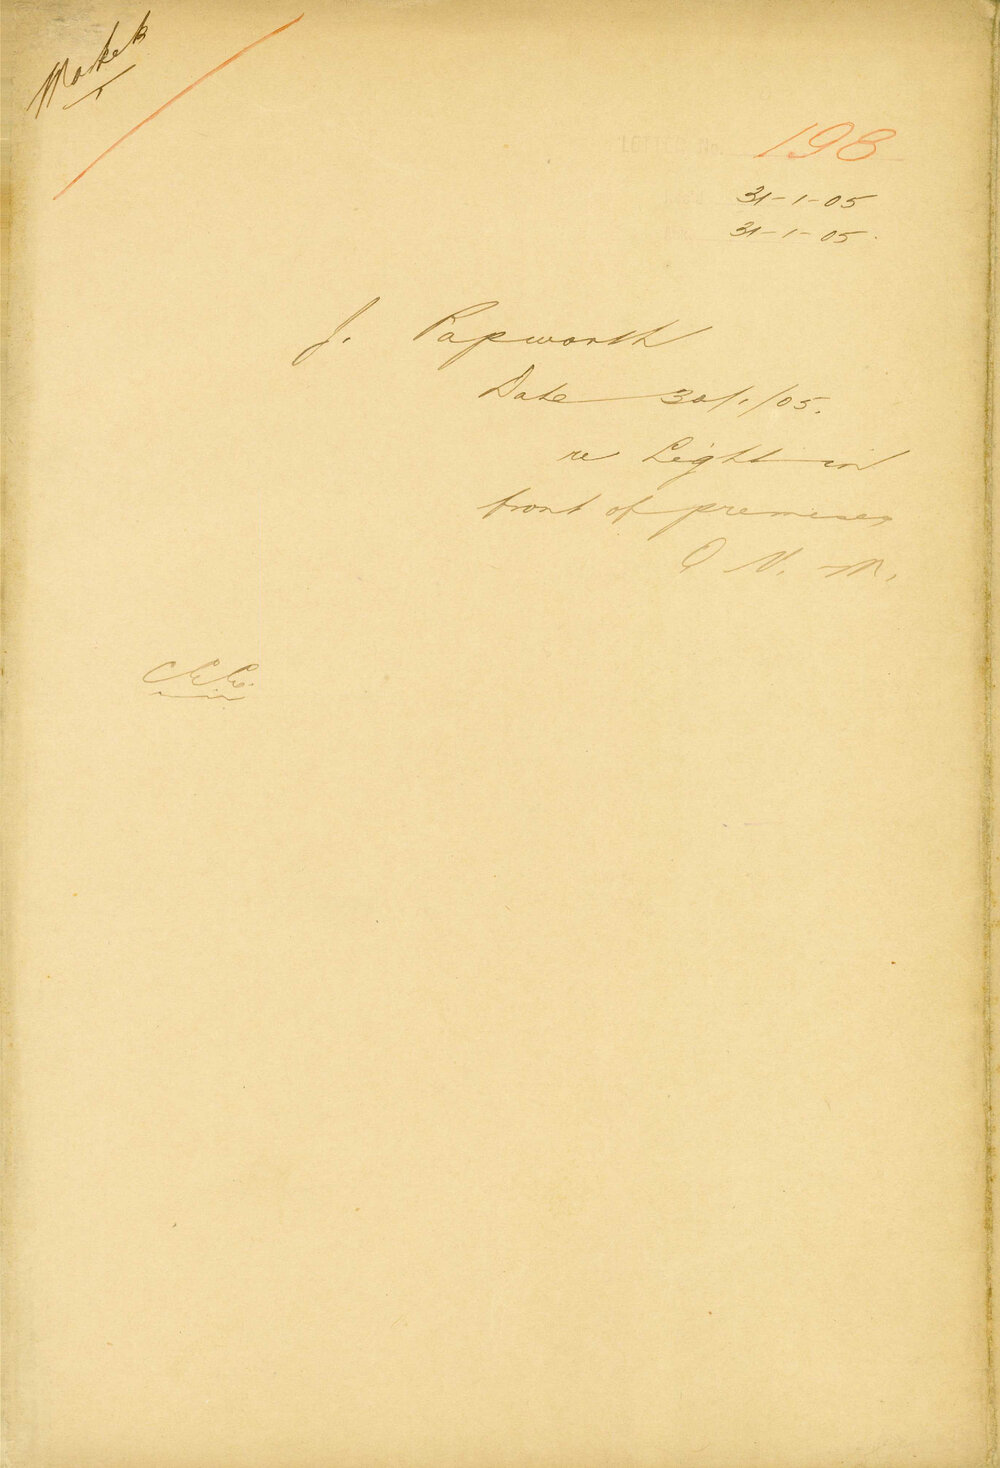 Market
LETTER No. 198
31-1-05
31-1-05.
J. Papworth
Date 30/1/05.
re Light in
front of premises
Q V. M.